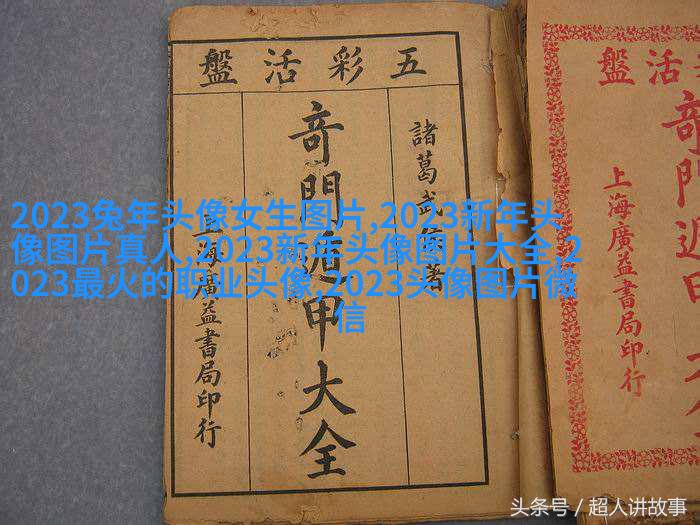 五彩活盤
諸葛武侯著
竒門遁甲大全
上海廣益書局印行
活盤
竒門遁甲
上海廣益書局印行
2023兔年头像女生图片,2023新年头
像图片真人,2023新年头像图片大全,2
023最火的职业头像,2023头像图片微
信
头条号 / 超人讲故事